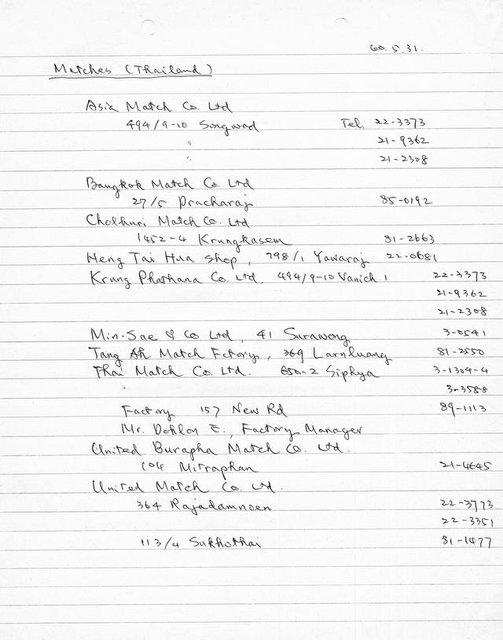 60. 5. 31.
Matches (Thailand)
Asia Match Co. Ltd
494/9-10 Songwad Tel. 22-3373
" 21-9362
" 21-2308
Bangkok Match Co. Ltd
27/5 Pracharaj 85-0192
Cholburi Match Co. Ltd
1452-4 Krungkasem 81-2663
Heng Tai Hua Shop, 798/1 Yawaraj 22-0681
Krung Phathana Co. Ltd. 494/9-10 Vanich 1 22-3373
21-9362
21-2308
Min-Sae & Co Ltd, 41 Surawong 3-0541
Tang Ah Match Fctory, 369 Larnluang 81-2550
Thai Match Co. Ltd. 650-2 Siphya 3-1304-4
3-3588
Factory 157 New Rd 89-1113
Mr. Dohlon E., Factory Manager
United Burapha Match Co. Ltd.
104 Mitraphan 21-4645
United Match Co. Ltd.
364 Rajadamnoen 22-3773
22-3351
113/4 Sukhothai 81-1477